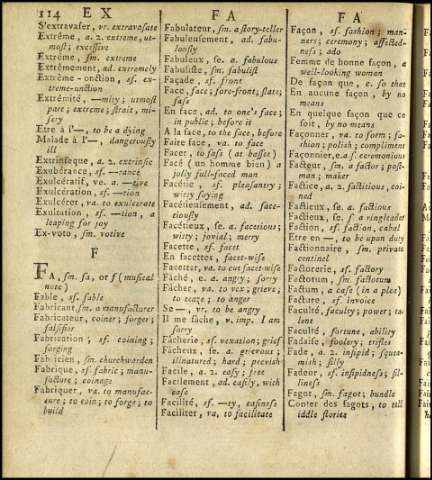 114 E X
F A
F A
S'extravaser, vr. extravasate
Extrême, a. 2. extreme, utmost; excessive
Extrême, sm. extreme
Extrêmement, ad. extremely
Extrême-onction, sf. extreme-unction
Extrémité, —mity; utmost
part; extreme; strait, misery
Etre à l'—, to be a dying
Malade à l'—, dangerously
ill
Extrinseque, a. 2. extrinsic
Exubérance, sf. —rance
Exulcératif, ve. a. —tive
Exulcération, sf. —tion
Exulcérer, va. to exulcerate
Exultation, sf. —tion, a
leaping for joy
Ex-voto, sm. votive
F
FA, sm. fa, or f (musical
note)
Fable, sf. fable
Fabricant, sm. a manufacturer
Fabricateur, coiner; forger;
falsifier
Fabrication, sf. coining;
forging
Fabricien, sm. churchwarden
Fabrique, sf. fabric; manufacture; coinage
Fabriquer, va. to manufacture; to coin; to forge; to
build
Fabulateur, sm. a story-teller
Fabuleusement, ad. fabulously
Fabuleux, se. a. fabulous
Fabuliste, sm. fabulist
Façade, sf. front
Face, face; fore-front; state;
fass
En face, ad. to one's face;
in public; before it
A la face, to the face, before
Faire face, va. to face
Facer, to fass (at basset)
Facé (un homme bien) a
jolly full-faced man
Facétie, sf. pleasantry;
witty saying
Facétieusement, ad. facetiously
Facétieux, se. a. facetious;
witty; jovial; merry
Facette, sf. facet
En facettes, facet-wise
Facetter, va. to cut facet-wise
Fâché, e. a. angry; sorry
Fâcher, va. to vex; grieve;
to teaze; to anger
Se —, vr. to be angry
Il me fâche, v. imp. I am
sorry
Fâcherie, sf. vexation; grief
Fâcheux, se. a. grievous;
illnatured; hard; peevish
Facile, a. 2. easy; free
Facilement, ad. easily, with
ease
Facilité, sf. —ty, easiness
Faciliter, va. to facilitate
Façon, sf. fashion; manners; ceremony; affectedness; ado
Femme de bonne façon, a
well-looking woman
De façon que, c. so that
En aucune façon, by no
means
En quelque façon que ce
soit, by no means
Façonner, va. to form; fashion; polish; compliment
Façonnier, e. a. f. ceremonious
Facteur, sm. a factor; postman; maker
Factice, a. 2. factitious, coined
Factieux, se. a. factious
Factieux, se. f. a ringleader
Faction, sf. faction, cabal
Etre en —, to be upon duty
Factionnaire, sm. private
centinel
Factorerie, sf. factory
Factotum, sm. factotum
Factum, a case (in a plea)
Facture, sf. invoice
Faculté, faculty; power;
Faculté, fortune, ability
Fadaise, foolery; trifles
Fade, a. 2. insipid; squeamish; silly
Fadeur, sf. insipidness; silliness
Fagot, sm. fagot; bundle
Conter des fagots, to tell
iddle stories